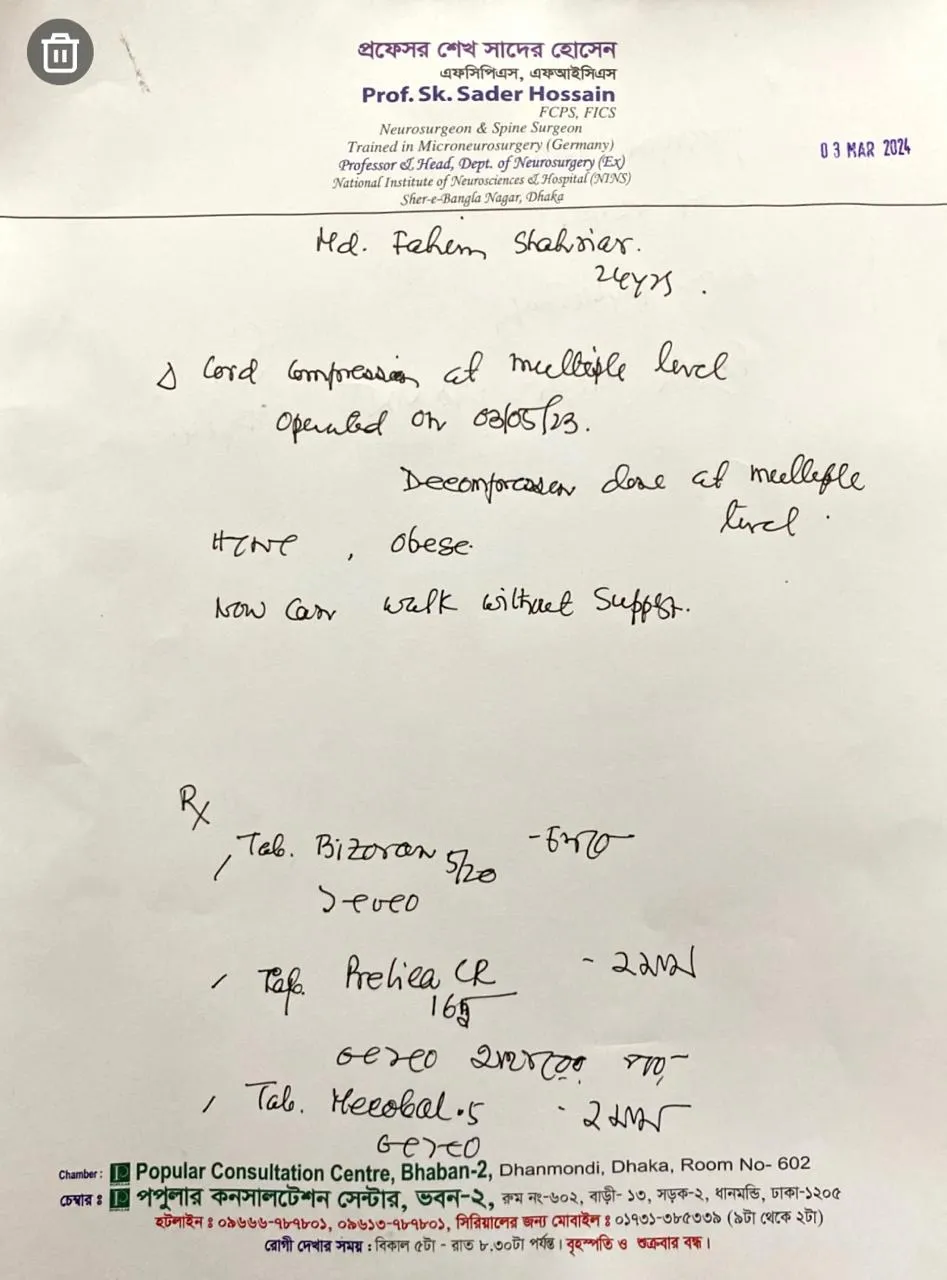 প্রফেসর শেখ সাদের হোসেন
এফসিপিএস, এফআইসিএস
Prof. Sk. Sader Hossain
FCPS, FICS
Neurosurgeon & Spine Surgeon
Trained in Microneurosurgery (Germany)
Professor & Head, Dept. of Neurosurgery (Ex)
National Institute of Neurosciences & Hospital (NINS)
Sher-e-Bangla Nagar, Dhaka
03 MAR 2024
Md. Fahem Shahriar.
24yrs.
Δ Cord Compression at multiple level
Operated on 03/05/23.
Decompression done at multiple
level.
, Obese.
Now Can walk without Support.
Rx
Tab. Bizoran 5/20 - চলবে
১+০+০
Tab. CR - ২মাস
165
০+১+০
Tab. Mecobal .5 - ২মাস
০+১+০
Chamber : Popular Consultation Centre, Bhaban-2, Dhanmondi, Dhaka, Room No- 602
চেম্বার : পপুলার কনসালটেশন সেন্টার, ভবন-২, রুম নং-৬০২, বাড়ী- ১৩, সড়ক-২, ধানমন্ডি, ঢাকা-১২০৫
হটলাইন : ০৯৬৬৬-৭৮৭৮০১, ০৯৬১৩-৭৮৭৮০১, সিরিয়ালের জন্য মোবাইল : ০১৭৩১-৩৮৫৩৩৯ (৯টা থেকে ২টা)
রোগী দেখার সময় : বিকাল ৫টা - রাত ৮.৩০টা পর্যন্ত। বৃহস্পতি ও শুক্রবার বন্ধ।